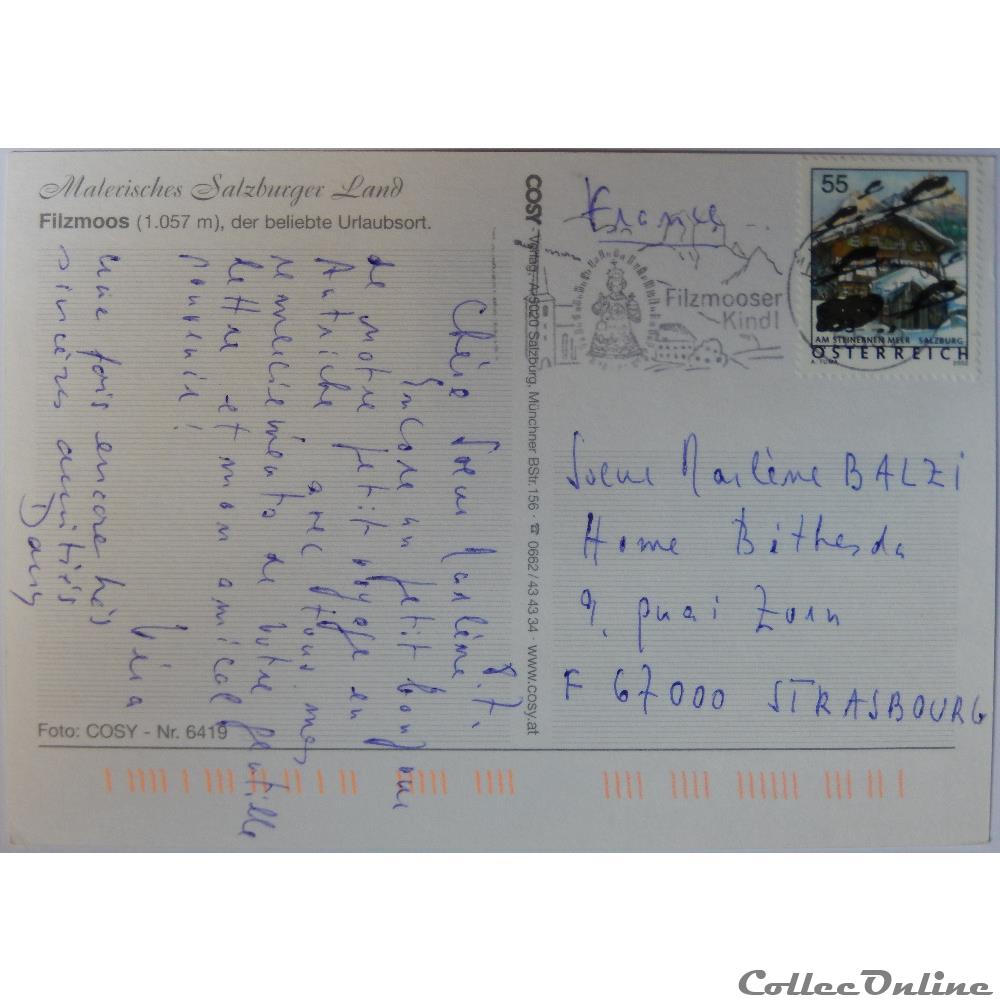 Malerisches Salzburger Land
Filzmoos (1.057 m), der beliebte Urlaubsort.
8.7.
Chère Soeur Marlène,
Encore un petit bonjour
de notre petit voyage en
Autriche avec tous mes
remerciements de votre gentille
lettre et mon amical
souvenir!
Une fois encore très
sincères amitiés
Dany
Foto: COSY - Nr. 6419
COSY - Verlag, A-5020 Salzburg, Münchner BStr. 156 · ☎ 0662 / 43 43 34 · www.cosy.at
France
Filzmooser
Kindl
55
AM STEINERNEN MEER SALZBURG
ÖSTERREICH
Soeur Marlène BALZI
Home Béthesda
9, quai Zorn
F 67000 STRASBOURG
CollecOnline